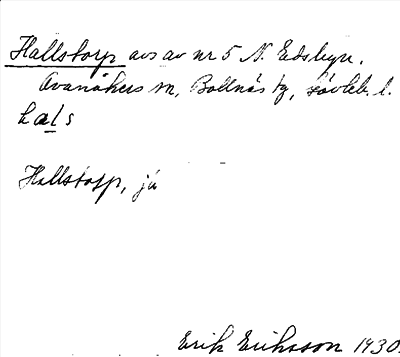 Hallstorp avs av nr 5 N. Edsbyn,
Ovanåkers sn, Bollnäs tg, Gävleb. l.
hals
Hallstorp, jä
Erik Eriksson 1930.